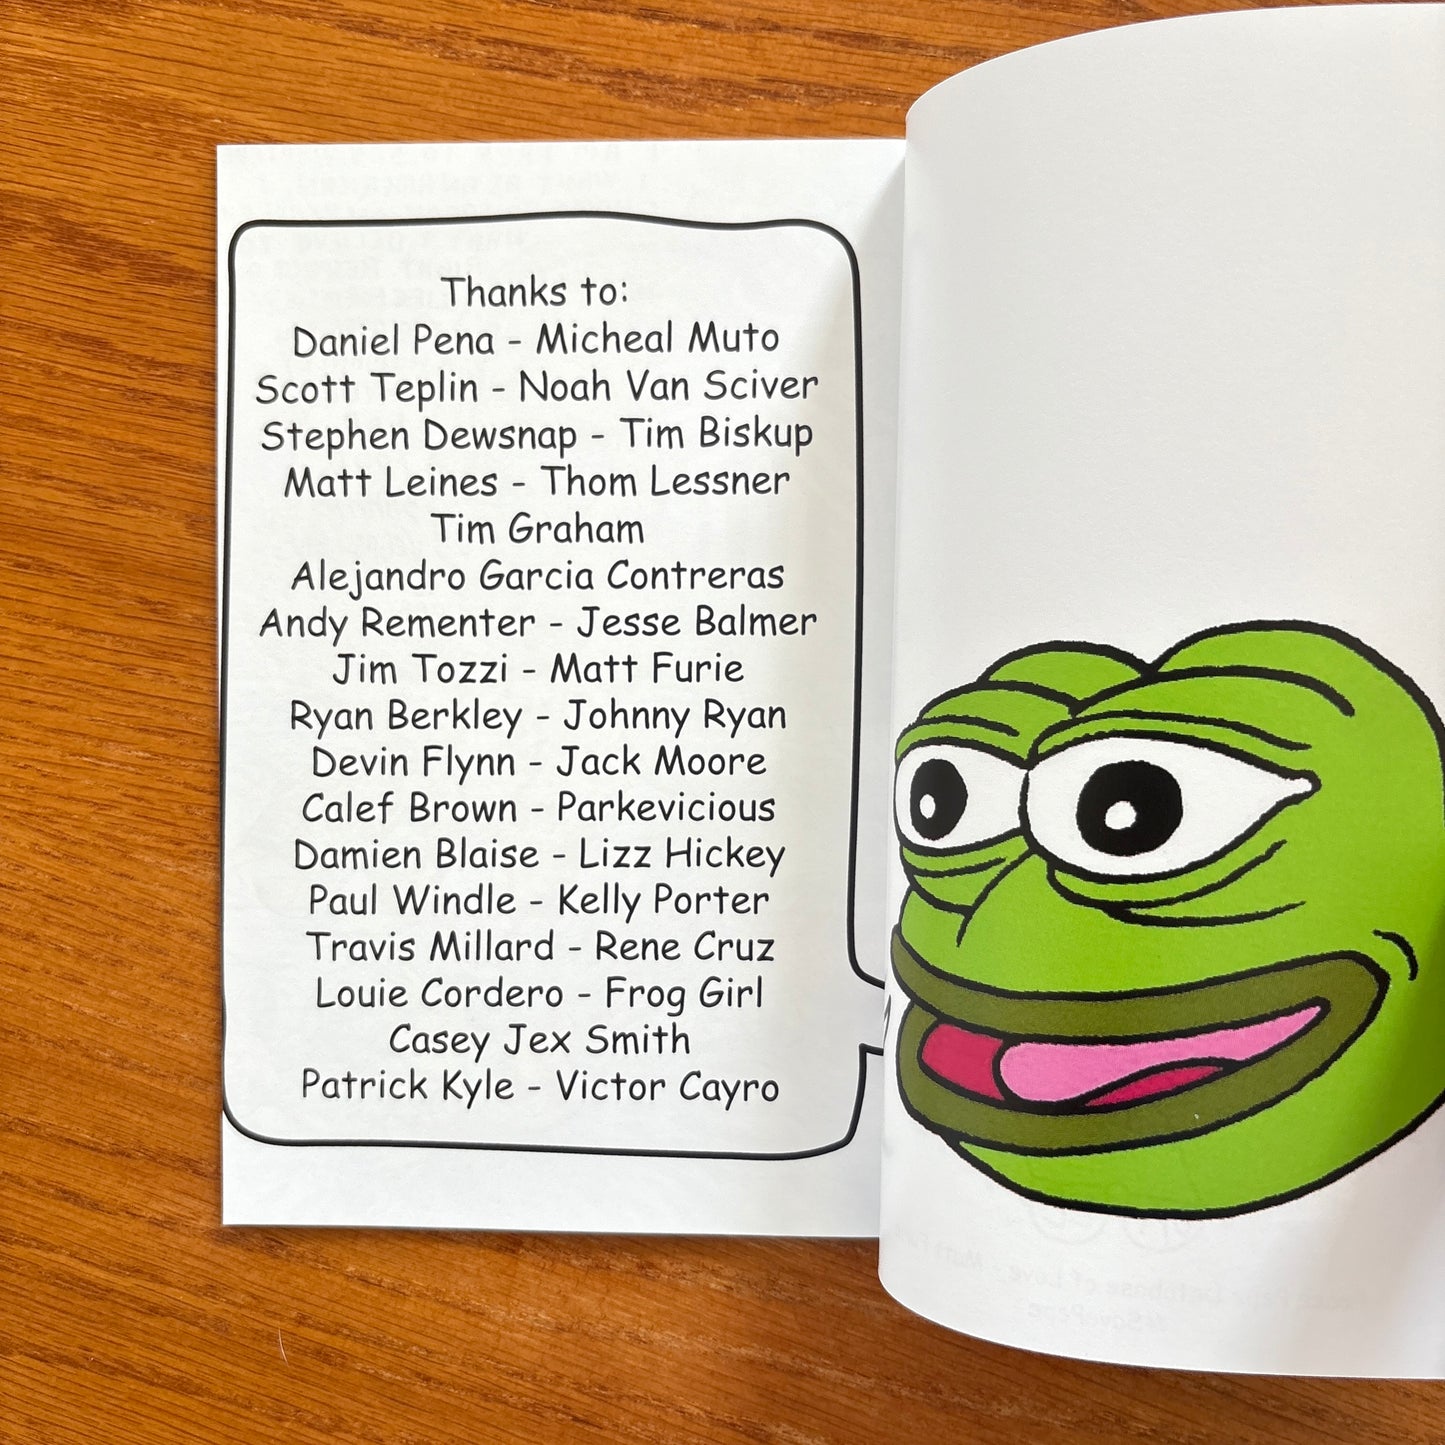 Thanks to:
Daniel Pena - Micheal Muto
Scott Teplin - Noah Van Sciver
Stephen Dewsnap - Tim Biskup
Matt Leines - Thom Lessner
Tim Graham
Alejandro Garcia Contreras
Andy Rementer - Jesse Balmer
Jim Tozzi - Matt Furie
Ryan Berkley - Johnny Ryan
Devin Flynn - Jack Moore
Calef Brown - Parkevicious
Damien Blaise - Lizz Hickey
Paul Windle - Kelly Porter
Travis Millard - Rene Cruz
Louie Cordero - Frog Girl
Casey Jex Smith
Patrick Kyle - Victor Cayro